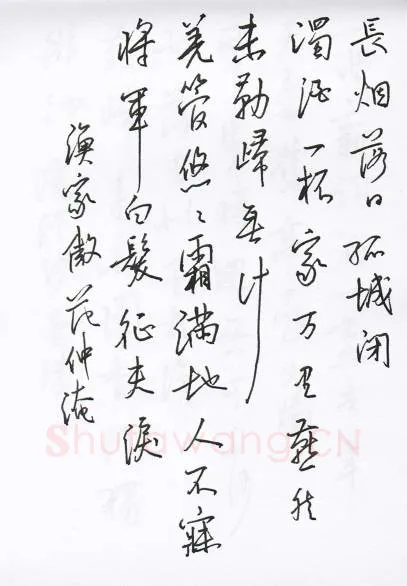 長烟落日孤城闭
濁酒一杯家万里燕然
未勒歸無计
羌管悠々霜满地人不寐
將軍白髮征夫淚
渔家傲 范仲淹
Shufawang.CN